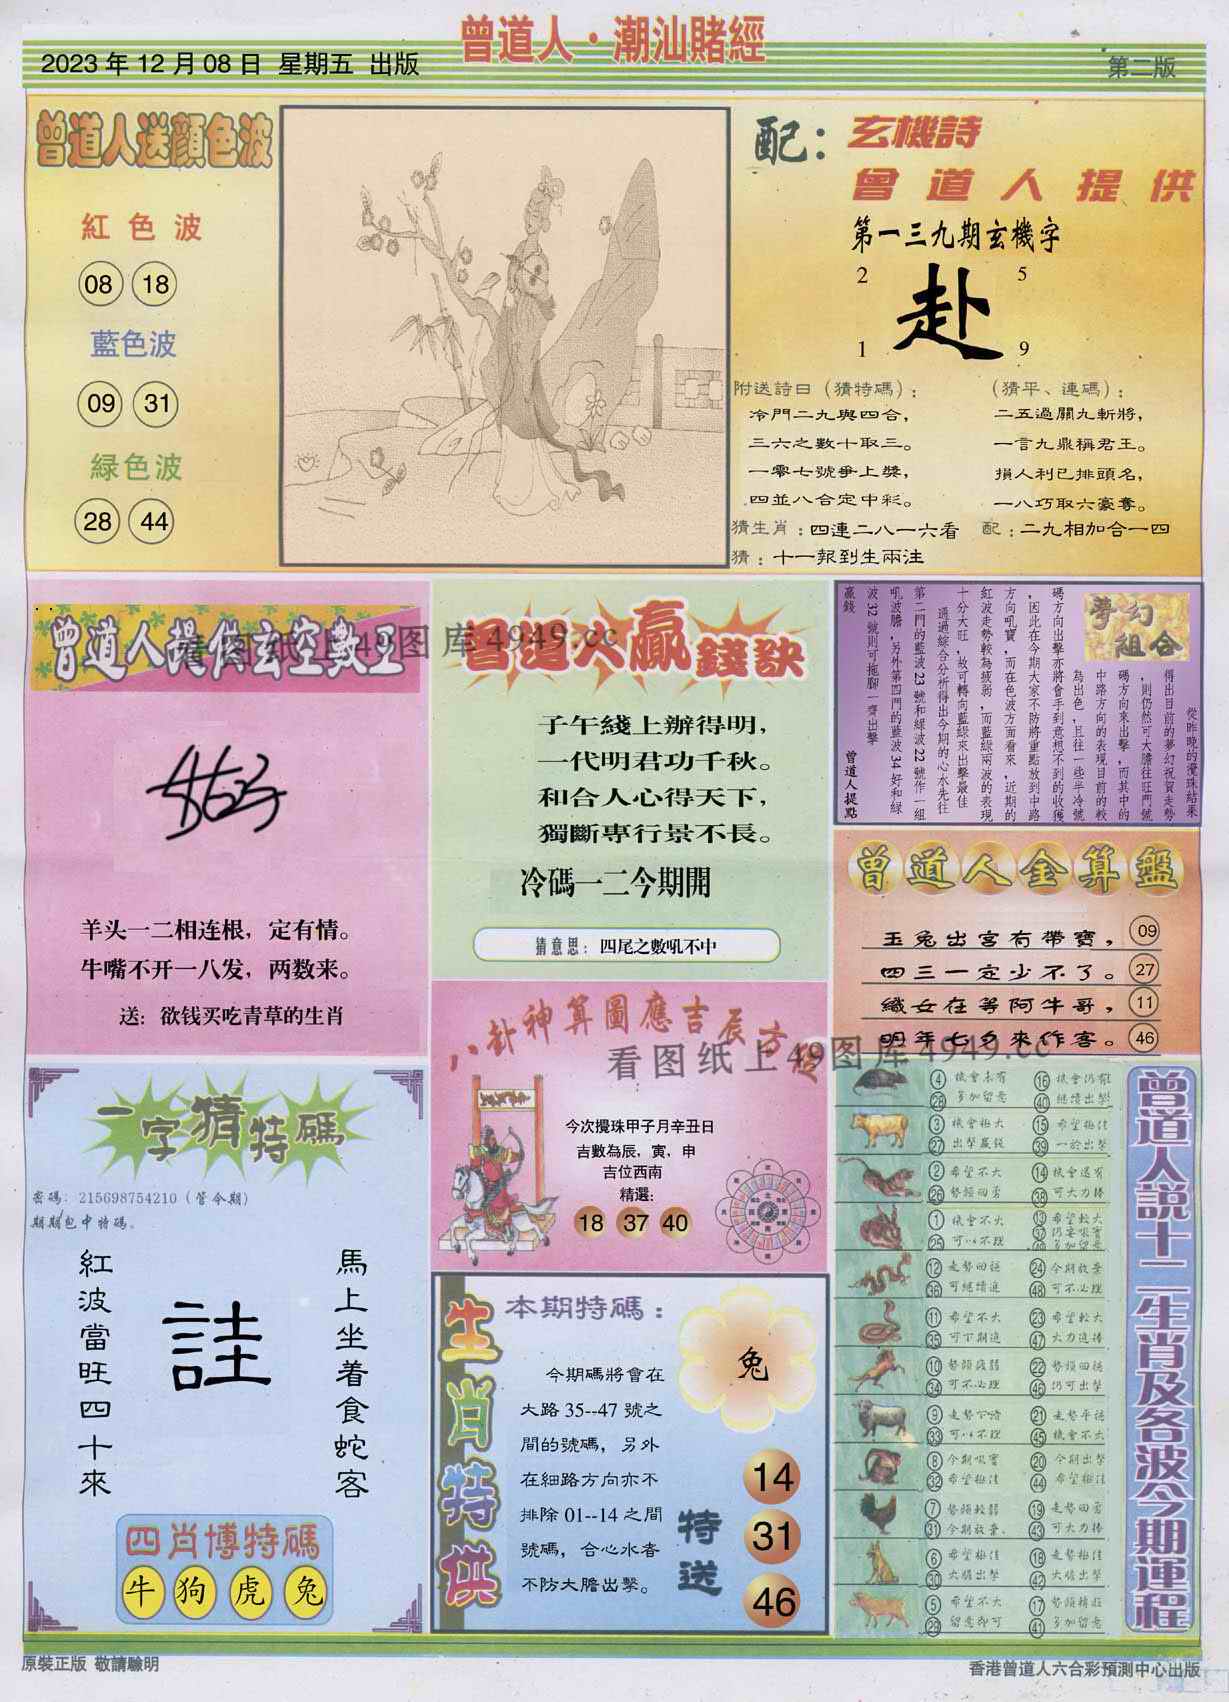 曾道人·潮汕賭經
2023年12月08日 星期五 出版
第二版
曾道人送顔色波
紅色波
08 18
藍色波
09 31
緑色波
28 44
配：玄機詩
曾道人提供
第一三九期玄機字
2 5
赴
1 9
附送詩曰（猜特碼）：
冷門二九與四合，
三六之數十取三。
一零七號爭上獎，
四並八合定中彩。
猜生肖：四連二八一六看
猜：十一報到生兩注
（猜平、連碼）：
二五過關九斬將，
一言九鼎稱君王。
損人利已排頭名，
一八巧取六豪奪。
配：二九相加合一四
曾道人提供玄空數王
看图纸上49图库4949.cc
羊头一二相连根，定有情。
牛嘴不开一八发，两数来。
送：欲钱买吃青草的生肖
曾道人贏錢訣
子午綫上辦得明，
一代明君功千秋。
和合人心得天下，
獨斷專行景不長。
冷碼一二今期開
猜意思：四尾之數吼不中
夢幻組合
從昨晚的攪珠結果
得出目前的夢幻祝賀走勢
，則仍然可大膽往旺門號
碼方向來出擊，而其中的
中路方向的表現目前的較
為出色，且往一些半冷號
碼方向出擊亦將會手到意想不到的收獲
，因此在今期大家不防將重點放到中路
方向吼寶，而在色波方面看來，近期的
紅波走勢較為疲弱，而藍綠兩波的表現
十分大旺，故可轉向藍綠來出擊最佳
通過綜合分析得出今期的心水先往
第二門的藍波23號和綠波22號作一組
吼波膽，另外第四門的藍波34好和綠
波32號則可拖腳一齊出擊
贏錢
曾道人提點
曾道人金算盤
玉兔出宮有帶寶， 09
四三一定少不了。 27
織女在等阿牛哥， 11
明年七夕來作客。 46
八卦神算圖應吉辰方位
看图纸上49图库4949.cc
今次攪珠甲子月辛丑日
吉數為辰，寅，申
吉位西南
精選：
18 37 40
一字猜特碼
密碼：215698754210（管今期）
期期包中特碼。
馬上坐着食蛇客
詿
紅波當旺四十來
四肖博特碼
牛 狗 虎 兔
生肖特供
本期特碼：
兔
今期碼將會在
大路35--47號之
間的號碼，另外
在細路方向亦不
排除01--14之間
號碼，合心水者
不防大膽出擊。
特送
14
31
46
曾道人説十二生肖及各波今期運程
4 28 機會未有 多加留意 16 40 機會仍有 繼續出擊
3 27 機會極大 出擊贏錢 15 39 希望極佳 一於出擊
2 26 希望不大 勢頭回勇 14 38 機會還有 可大力捧
1 25 機會不大 可以不理 13 37 49 希望較大 仍要吼實 多加留意
12 36 走勢回穩 可繼續追 24 48 今期放棄 可不必理
11 35 希望不大 可下期追 23 47 希望較大 大力追捧
10 34 勢頭疲弱 可不必理 22 46 勢頭回穩 仍可出擊
9 33 走勢下滑 可以不理 21 45 走勢平穩 機會不大
8 32 今期吼實 希望極佳 20 44 今期出擊 希望極佳
7 31 勢頭較弱 今期放棄. 19 43 走勢回勇 可大力捧
6 30 希望極佳 大膽出擊 18 42 走勢極佳 大膽出擊
5 29 希望不大 留意即可 17 41 勢頭轉旺 多加留意
原裝正版 敬請驗明
香港曾道人六合彩預測中心出版